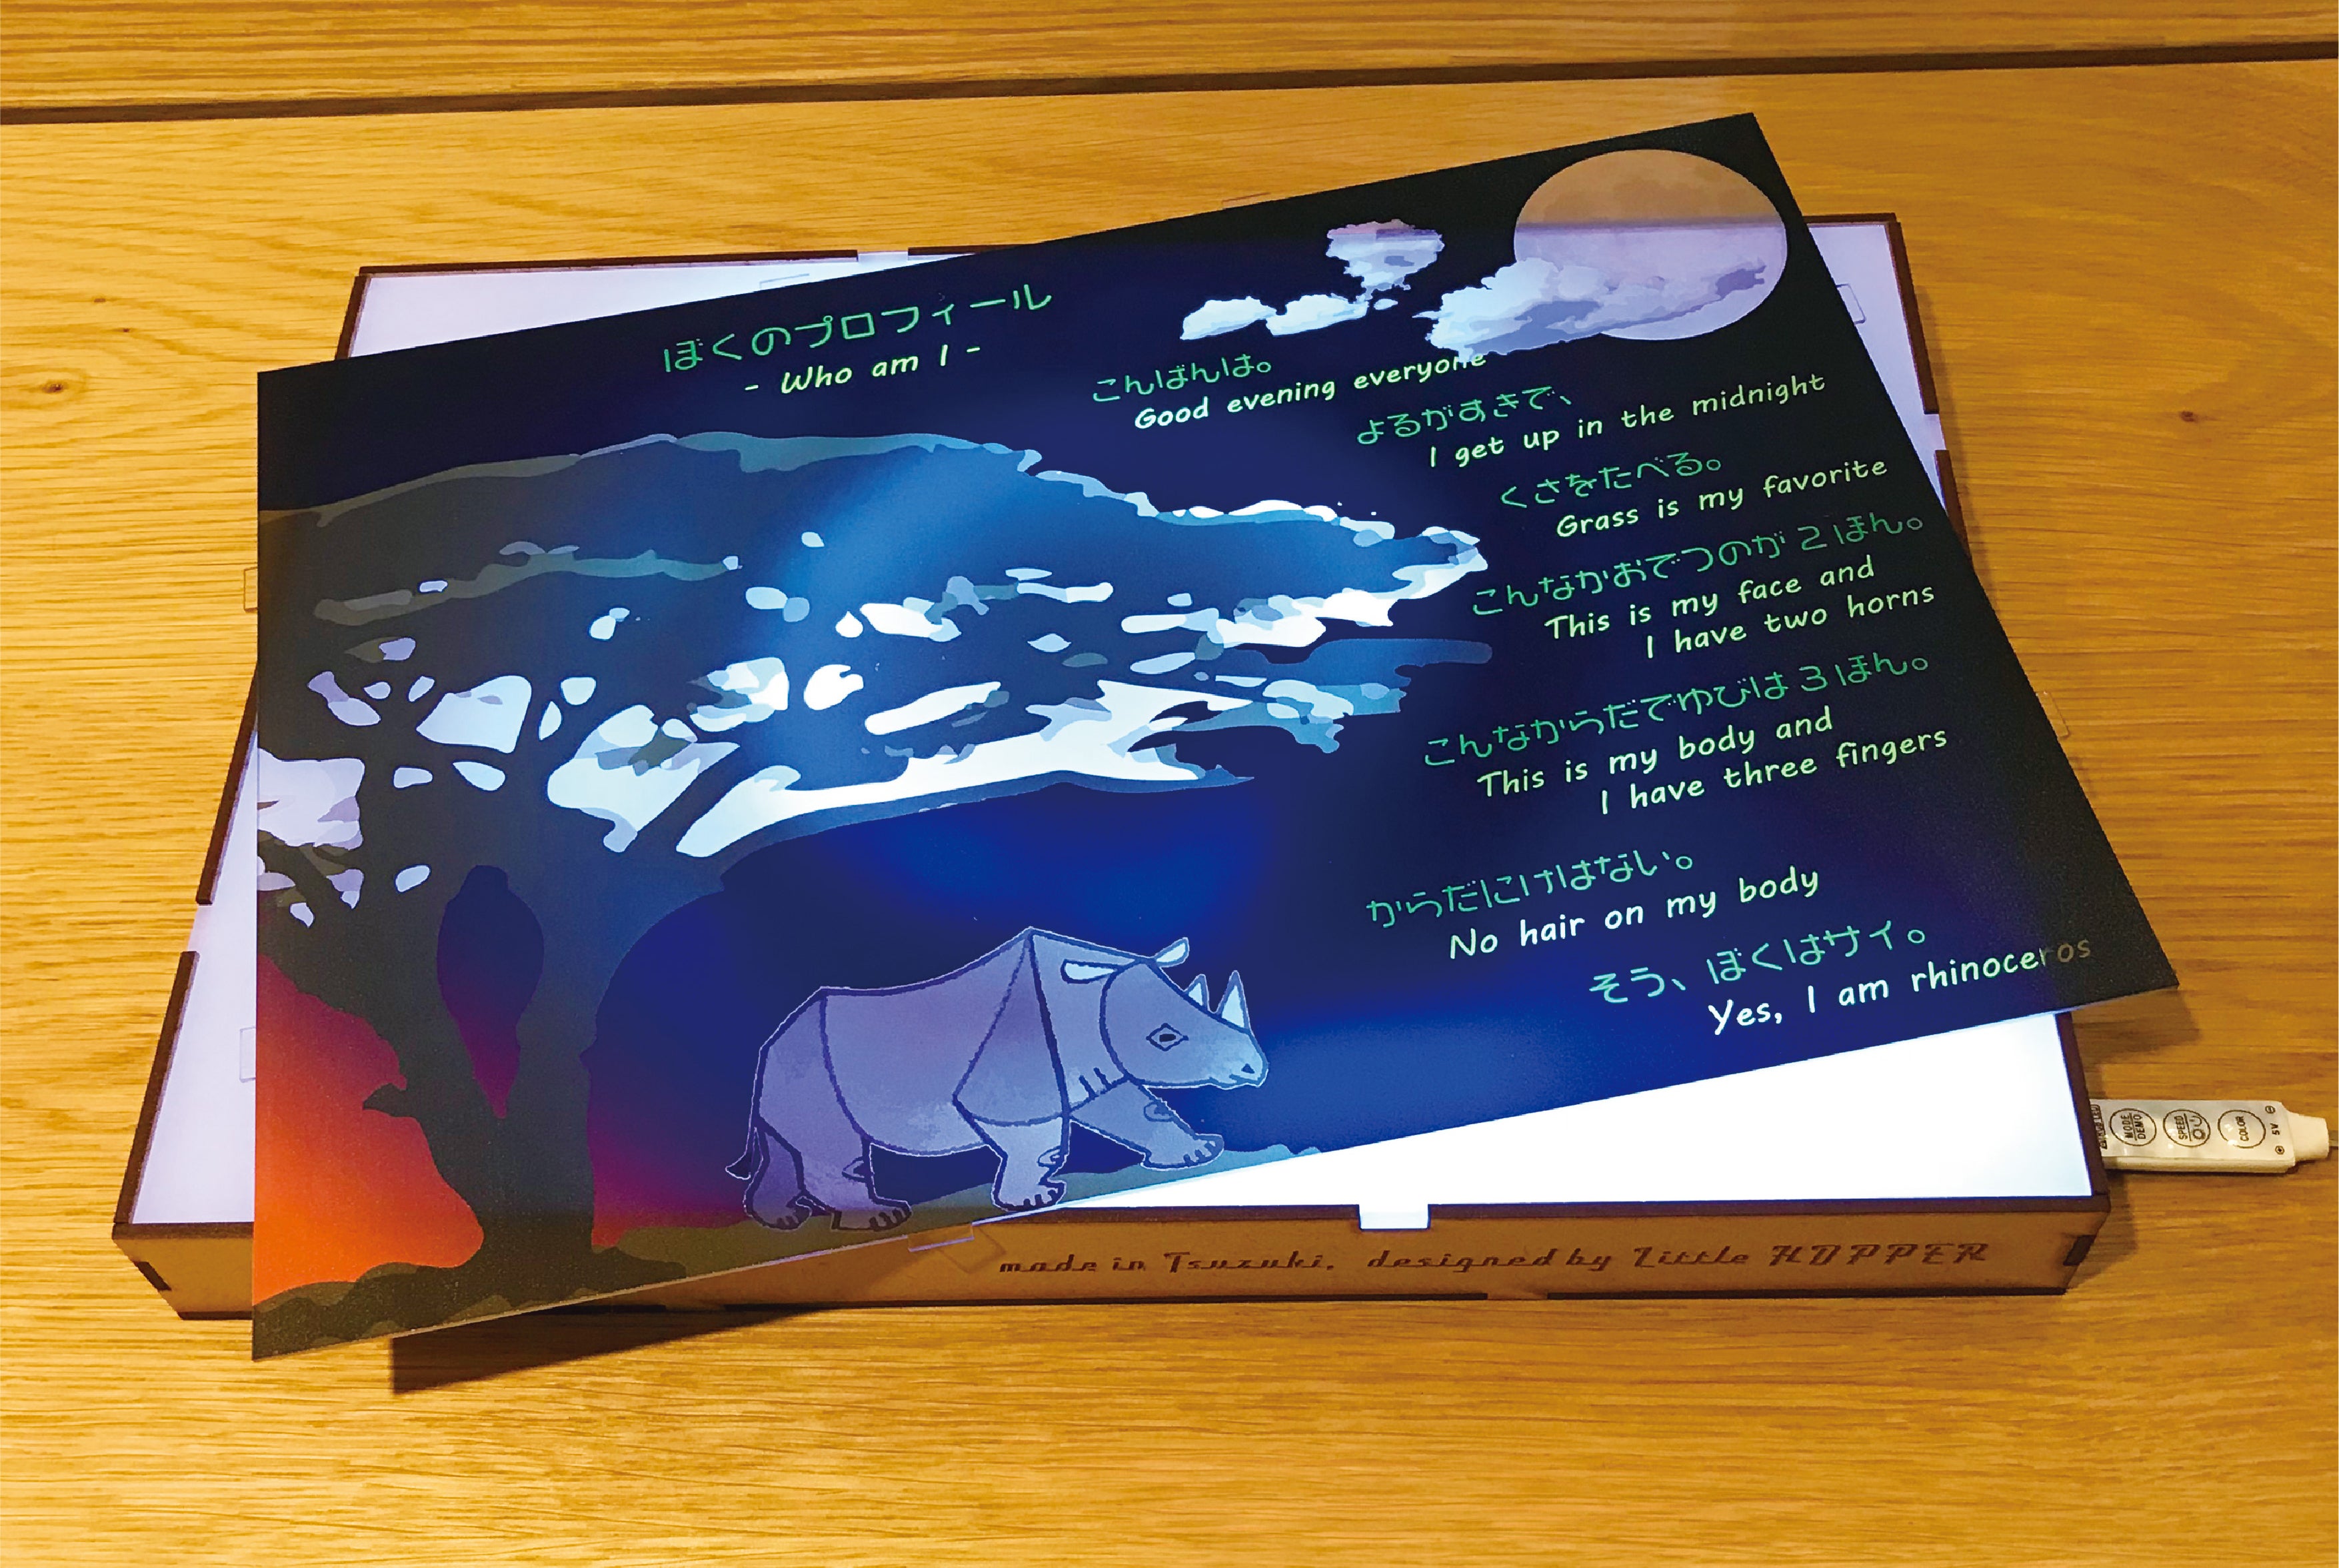 ぼくのプロフィール
- Who am I -
こんばんは。
Good evening everyone
よるがすきで、
I get up in the midnight
くさをたべる。
Grass is my favorite
こんなかおでつのが2ほん。
This is my face and
I have two horns
こんなからだでゆびは3ぼん。
This is my body and
I have three fingers
からだにけはない。
No hair on my body
そう、ぼくはサイ。
Yes, I am rhinoceros
made in Tsuzuki. designed by Little HOPPER
MODE
DEMO
SPEED
COLOR
5V